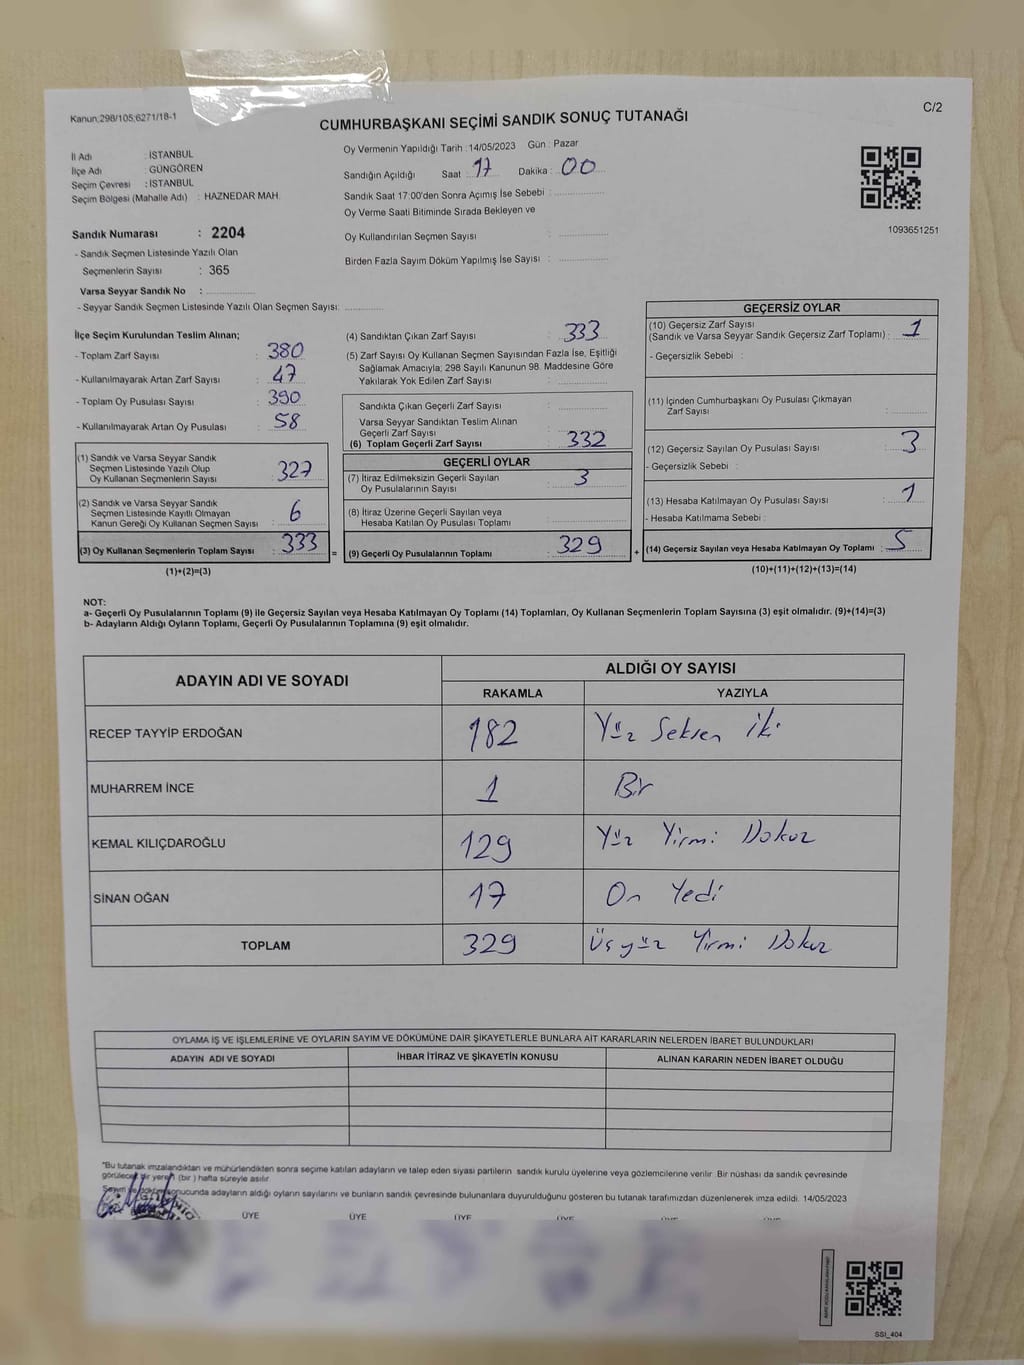 Kanun;298/105;6271/18-1
C/2
CUMHURBAŞKANI SEÇİMİ SANDIK SONUÇ TUTANAĞI
İl Adı : İSTANBUL
İlçe Adı : GÜNGÖREN
Seçim Çevresi : İSTANBUL
Seçim Bölgesi (Mahalle Adı) : HAZNEDAR MAH.
Sandık Numarası : 2204
- Sandık Seçmen Listesinde Yazılı Olan
Seçmenlerin Sayısı : 365
Varsa Seyyar Sandık No :
- Seyyar Sandık Seçmen Listesinde Yazılı Olan Seçmen Sayısı:
Oy Vermenin Yapıldığı Tarih : 14/05/2023 Gün : Pazar
Sandığın Açıldığı Saat : 17 Dakika : 00
Sandık Saat 17:00'den Sonra Açımış İse Sebebi :
Oy Verme Saati Bitiminde Sırada Bekleyen ve
Oy Kullandırılan Seçmen Sayısı :
Birden Fazla Sayım Döküm Yapılmış İse Sayısı :
1093651251
İlçe Seçim Kurulundan Teslim Alınan;
- Toplam Zarf Sayısı : 380
- Kullanılmayarak Artan Zarf Sayısı : 47
- Toplam Oy Pusulası Sayısı : 390
- Kullanılmayarak Artan Oy Pusulası : 58
(1) Sandık ve Varsa Seyyar Sandık
Seçmen Listesinde Yazılı Olup
Oy Kullanan Seçmenlerin Sayısı : 327
(2) Sandık ve Varsa Seyyar Sandık
Seçmen Listesinde Kayıtlı Olmayan
Kanun Gereği Oy Kullanan Seçmen Sayısı : 6
(3) Oy Kullanan Seçmenlerin Toplam Sayısı : 333
(1)+(2)=(3)
(4) Sandıktan Çıkan Zarf Sayısı : 333
(5) Zarf Sayısı Oy Kullanan Seçmen Sayısından Fazla İse, Eşitliği
Sağlamak Amacıyla; 298 Sayılı Kanunun 98. Maddesine Göre
Yakılarak Yok Edilen Zarf Sayısı :
Sandıkta Çıkan Geçerli Zarf Sayısı :
Varsa Seyyar Sandıktan Teslim Alınan
Geçerli Zarf Sayısı :
(6) Toplam Geçerli Zarf Sayısı : 332
GEÇERLİ OYLAR
(7) İtiraz Edilmeksizin Geçerli Sayılan
Oy Pusulalarının Sayısı : 3
(8) İtiraz Üzerine Geçerli Sayılan veya
Hesaba Katılan Oy Pusulası Toplamı :
= (9) Geçerli Oy Pusulalarının Toplamı : 329 +
GEÇERSİZ OYLAR
(10) Geçersiz Zarf Sayısı
(Sandık ve Varsa Seyyar Sandık Geçersiz Zarf Toplamı) : 1
- Geçersizlik Sebebi :
(11) İçinden Cumhurbaşkanı Oy Pusulası Çıkmayan
Zarf Sayısı :
(12) Geçersiz Sayılan Oy Pusulası Sayısı : 3
- Geçersizlik Sebebi :
(13) Hesaba Katılmayan Oy Pusulası Sayısı : 1
- Hesaba Katılmama Sebebi :
(14) Geçersiz Sayılan veya Hesaba Katılmayan Oy Toplamı : 5
(10)+(11)+(12)+(13)=(14)
NOT:
a- Geçerli Oy Pusulalarının Toplamı (9) ile Geçersiz Sayılan veya Hesaba Katılmayan Oy Toplamı (14) Toplamları, Oy Kullanan Seçmenlerin Toplam Sayısına (3) eşit olmalıdır. (9)+(14)=(3)
b- Adayların Aldığı Oyların Toplamı, Geçerli Oy Pusulalarının Toplamına (9) eşit olmalıdır.
ADAYIN ADI VE SOYADI ALDIĞI OY SAYISI
RAKAMLA YAZIYLA
RECEP TAYYİP ERDOĞAN 182 Yüz Seksen İki
MUHARREM İNCE 1 Bir
KEMAL KILIÇDAROĞLU 129 Yüz Yirmi Dokuz
SİNAN OĞAN 17 On Yedi
TOPLAM 329 Üç yüz Yirmi Dokuz
OYLAMA İŞ VE İŞLEMLERİNE VE OYLARIN SAYIM VE DÖKÜMÜNE DAİR ŞİKAYETLERLE BUNLARA AİT KARARLARIN NELERDEN İBARET BULUNDUKLARI
ADAYIN ADI VE SOYADI İHBAR İTİRAZ VE ŞİKAYETİN KONUSU ALINAN KARARIN NEDEN İBARET OLDUĞU
"Bu tutanak imzalandıktan ve mühürlendikten sonra seçime katılan adayların ve talep eden siyasi partilerin sandık kurulu üyelerine veya gözlemcilerine verilir. Bir nüshası da sandık çevresinde
görülecek bir yere (bir) hafta süreyle asılır
Sayım ve döküm sonucunda adayların aldığı oyların sayılarını ve bunların sandık çevresinde bulunanlara duyurulduğunu gösteren bu tutanak tarafımızdan düzenlenerek imza edildi. 14/05/2023
ÜYE ÜYE ÜYE ÜYE
SSI_404